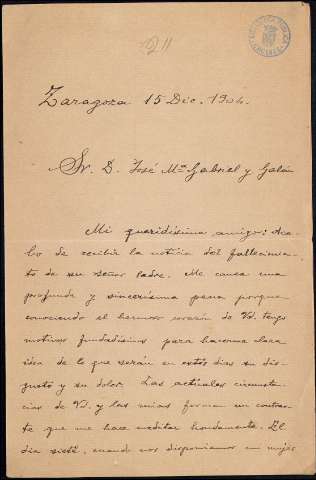 Zaragoza 15 Dic. 1904.
Sr. D. José Mª Gabriel y Galán
Mi queridísimo amigo: Aca-
bo de recibir la noticia del fallecimien-
to de su señor padre. Me causa una
profunda y sincerísima pena porque
conociendo el hermoso corazón de Vd. tengo
motivos fundadísimos para hacerme clara
idea de lo que serán en estos días su dis-
gusto y su dolor. Las actuales circunstan-
cias de Vd. y las mías forman un contras-
te que me hace meditar hondamente. El
día siete, cuando nos disponíamos mi mujer